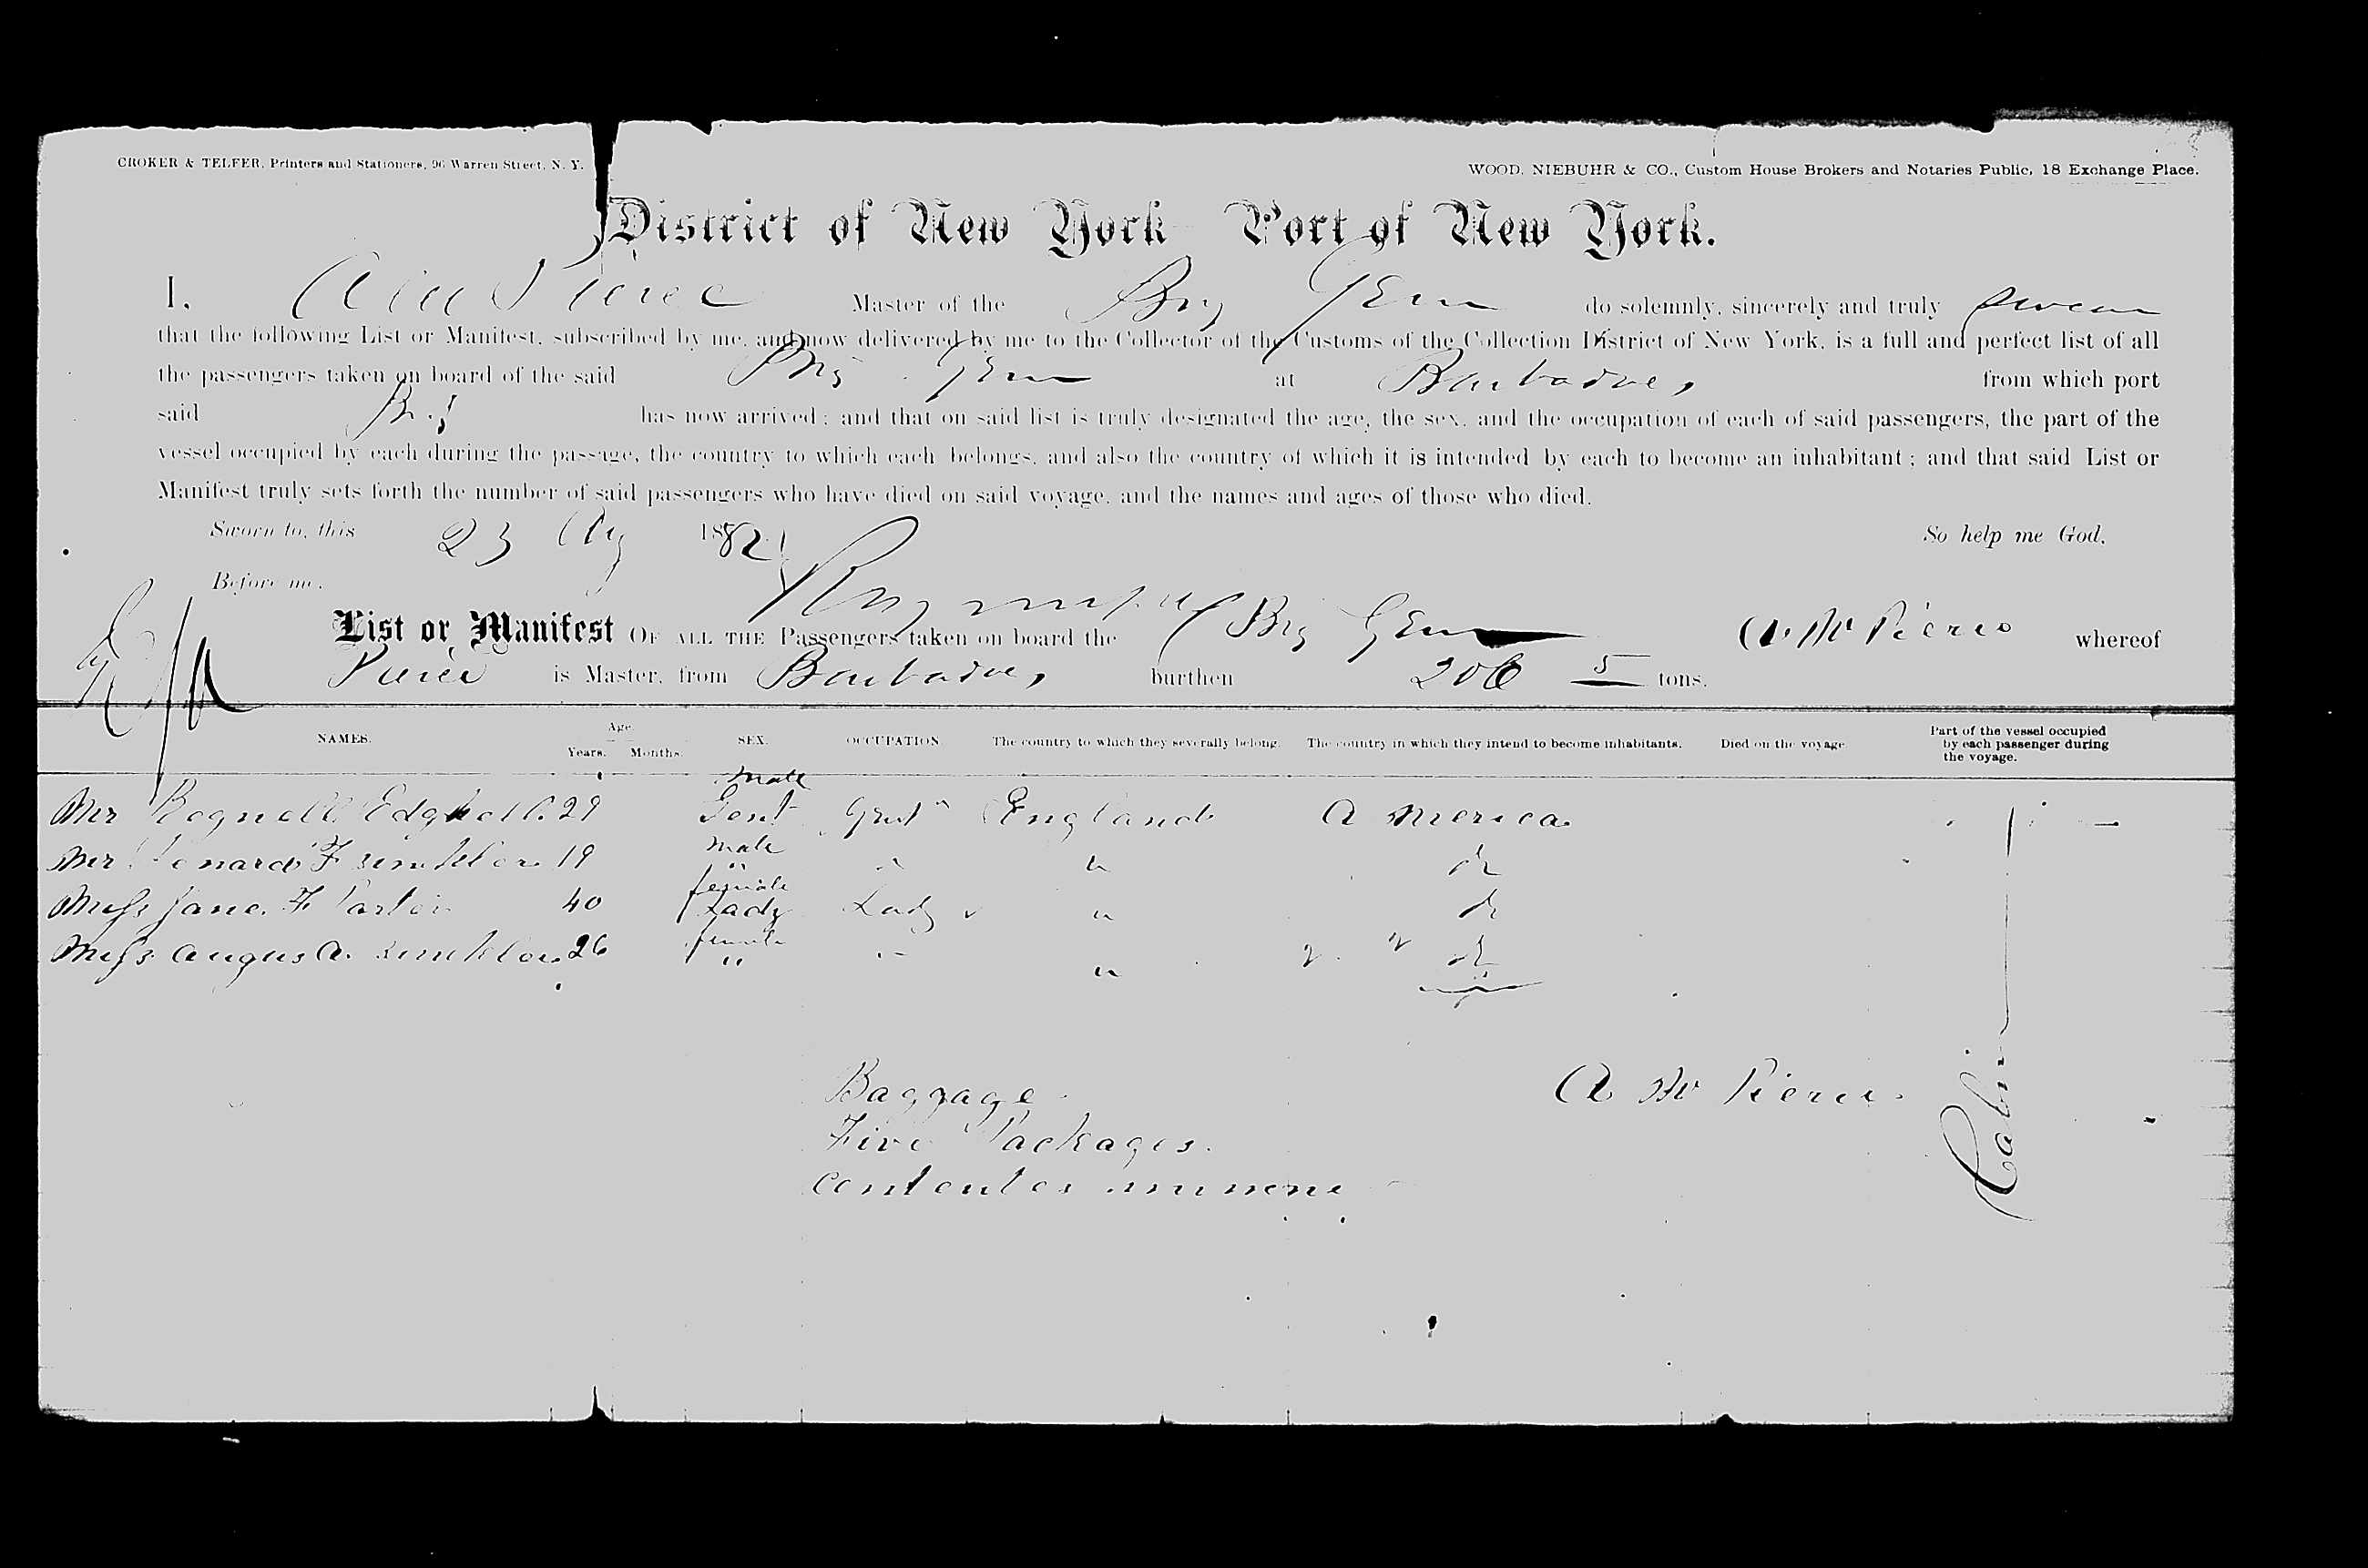 CROKER & TELFER, Printers and Stationers, 96 Warren Street, N. Y.
WOOD, NIEBUHR & CO., Custom House Brokers and Notaries Public, 18 Exchange Place.
District of New York Port of New York.
I, Master of the Brig Gem do solemnly, sincerely and truly swear
that the following List or Manifest, subscribed by me, and now delivered by me to the Collector of the Customs of the Collection District of New York, is a full and perfect list of all
the passengers taken on board of the said Brig Gem at Barbadoes, from which port
said Brig has now arrived; and that on said list is truly designated the age, the sex, and the occupation of each of said passengers, the part of the
vessel occupied by each during the passage, the country to which each belongs, and also the country of which it is intended by each to become an inhabitant; and that said List or
Manifest truly sets forth the number of said passengers who have died on said voyage, and the names and ages of those who died.
Sworn to, this 23 Aug 1882
So help me God.
Before me,
List or Manifest OF ALL THE Passengers taken on board the Brig Gem A. W Pierce whereof
Pierce is Master, from Barbadoes, burthen 206 5 tons.
NAMES. Age. Years. Months. SEX. OCCUPATION The country to which they severally belong. The country in which they intend to become inhabitants. Died on the voyage. Part of the vessel occupied by each passenger during the voyage.
male
Mr 29 Gent Gent England America
male
Mr 19 " " " do
female
Miss Jane. F 40 Lady Lady " do
female
Miss 26 " " " do
Baggage
A W Pierce.
Five Packages.
Cabin